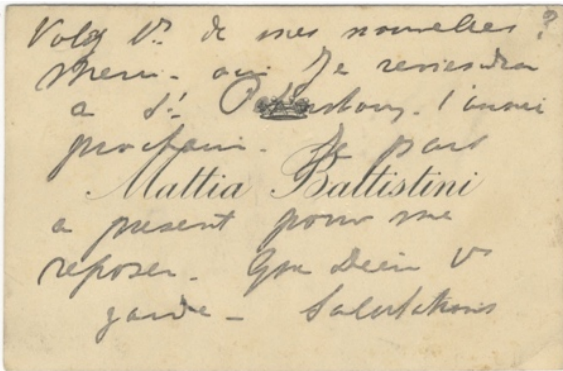 Voley Vs de mes nouvelles?
Merci - oui Je reviendrai
a St Petersbourg. l'année
prochain. Je pars
Mattia Battistini
a present pour me
reposer. Que Dieu Vs
garde - Salutations